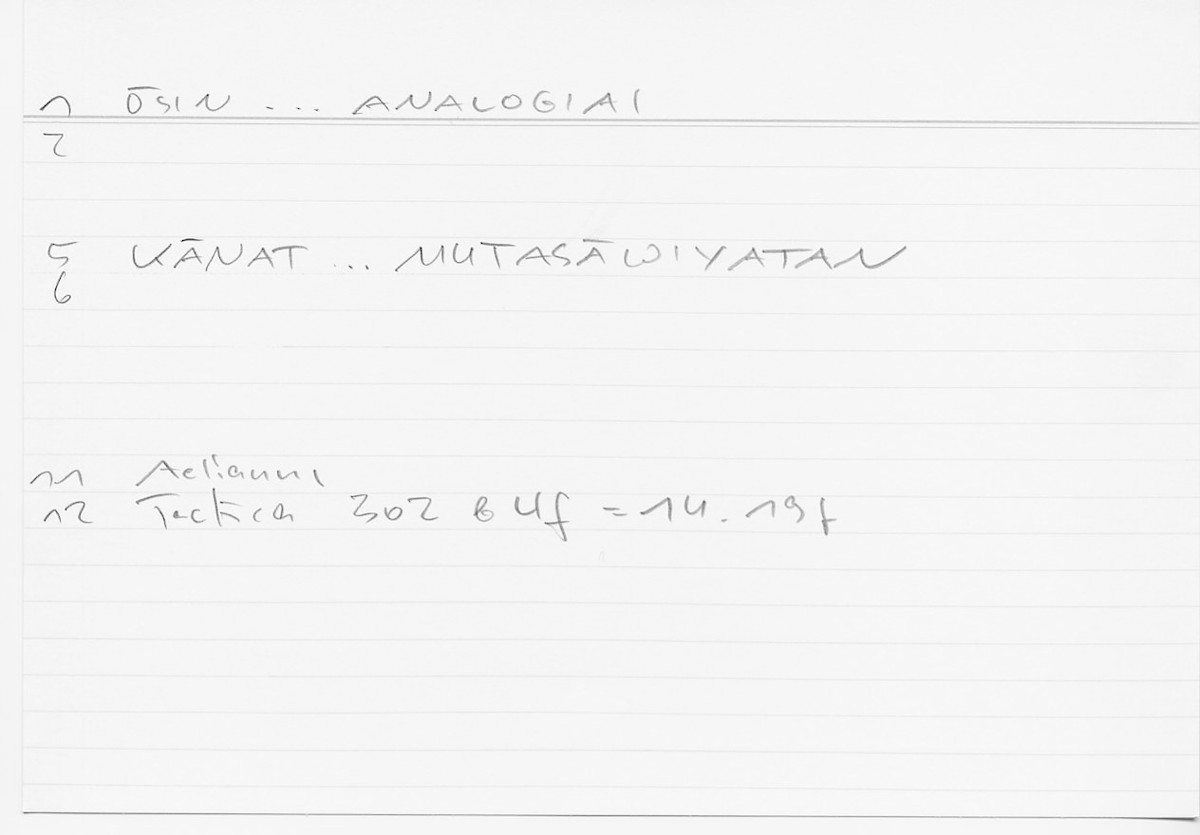 1 ŌSIN ... ANALOGIAI
2
5 KĀNAT ... MUTASĀWIYATAN
6
11 Aelianus
12 Tactica 302 B 4f = 14.19f